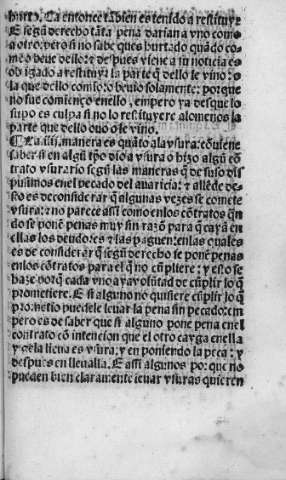 hurto. Ca entonce tābien es tenido a restituyr
E segū derecho tāta pena darian a vno como
a otro: pero si no sabe q̄ es hurtado quādo co-
me o beue dello: ⁊ despues viene a su noticia es
obligado a restituyr la parte q̄ dello le vino: o
la que dello comio: o beuio solamente: porque
no fue comienço enello, empero ya desque lo
supo es culpa si no lo restituyere alomenos la
parte que dello ouo o le vino.
manera es quāto a la vsura: cōuiene
saber si en algū tp̄o dio a vsura o hizo algū cō
trato vsurario segū las maneras q̄ de suso dis
pusimos enel pecado del auaricia: ⁊ allēde de
esto es de considerar q̄ algunas vezes se comete
vsura: ⁊ no parece assi como enlos cōtratos q̄n
do se ponē penas muy sin razō para q̄ cayā en
ellas los deudores ⁊ las paguen: enlas quales
es de considerar q̄ segū derecho se ponē penas
enlos cōtratos para el q̄ no cūpliere: y esto se
haze porq̄ cada vno aya volūtad de cūplir lo q̄
prometiere. E si alguno no quisiere cūplir lo q̄
prometio puedele leuar la pena sin pecado: em
pero es de saber que si alguno pone pena enel
contrato cō intencion que el otro cayga enella
y gela lieua es vsura: y en poniendo la peca: y
despues en lleualla. E assi algunos porque no
pueden bien claramente leuar vsuras quieren